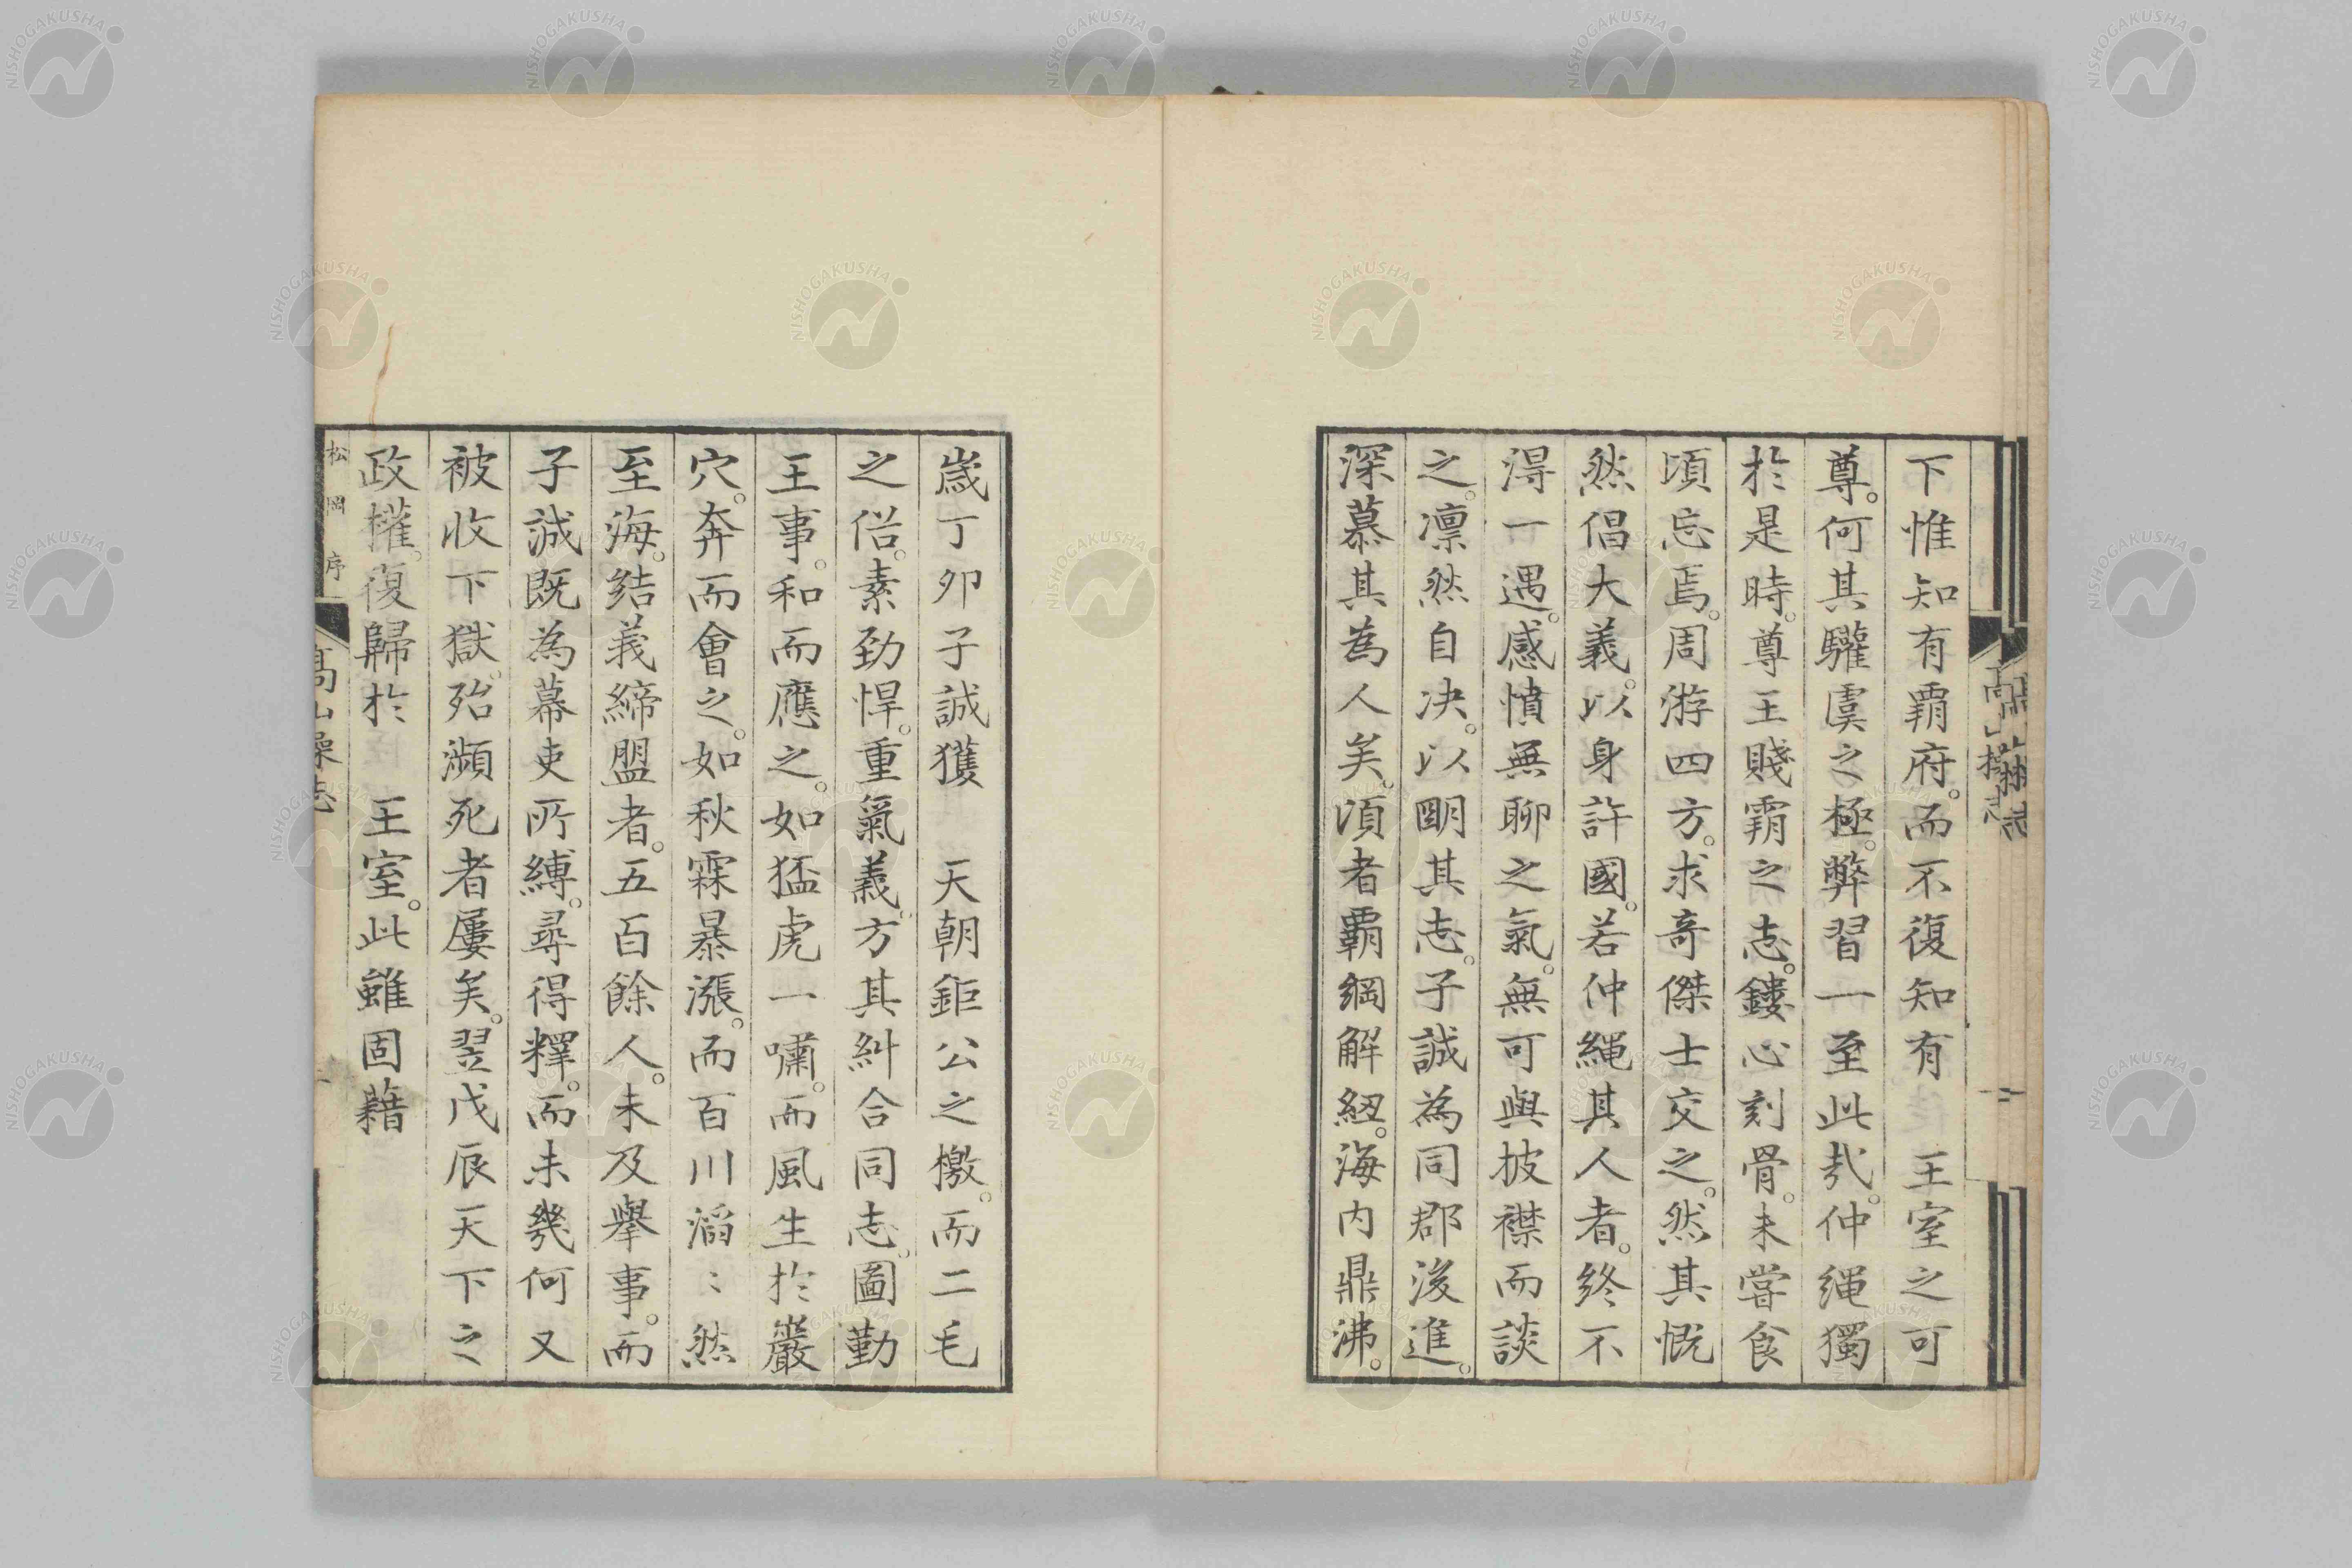 下惟知有霸府。而不復知有　王室之可
尊。何其驩虞之極。弊習一至此㢤。仲縄獨
於是時。尊王賤霸之志。鏤心刻骨。未嘗食
頃忘焉。周游四方。求奇傑士交之。然其慨
然倡大義。以身許國。若仲縄其人者。終不
得一遇。感憤無聊之氣。無可與披襟而談
之。凛然自决。以明其志。子誠為同郡後進。
深慕其為人矣。頃者覇綱解紐。海内鼎沸。
歳丁夘子誠獲　天朝鉅公之檄。而二毛
之侣。素勁悍。重氣義。方其糾合同志。圖勤
王事。和而應之。如猛虎一嘯。而風生於巖
穴。奔而會之。如秋霖暴漲。而百川滔〻然
至海。结義締盟者。五百餘人。未及舉事。而
子誠既為幕吏所縛。尋得釋。而未幾何又
被收下獄。殆瀕死者屢矣。翌戊辰天下之
政權。復歸於　王室。此雖固藉
松岡　序
高山操志